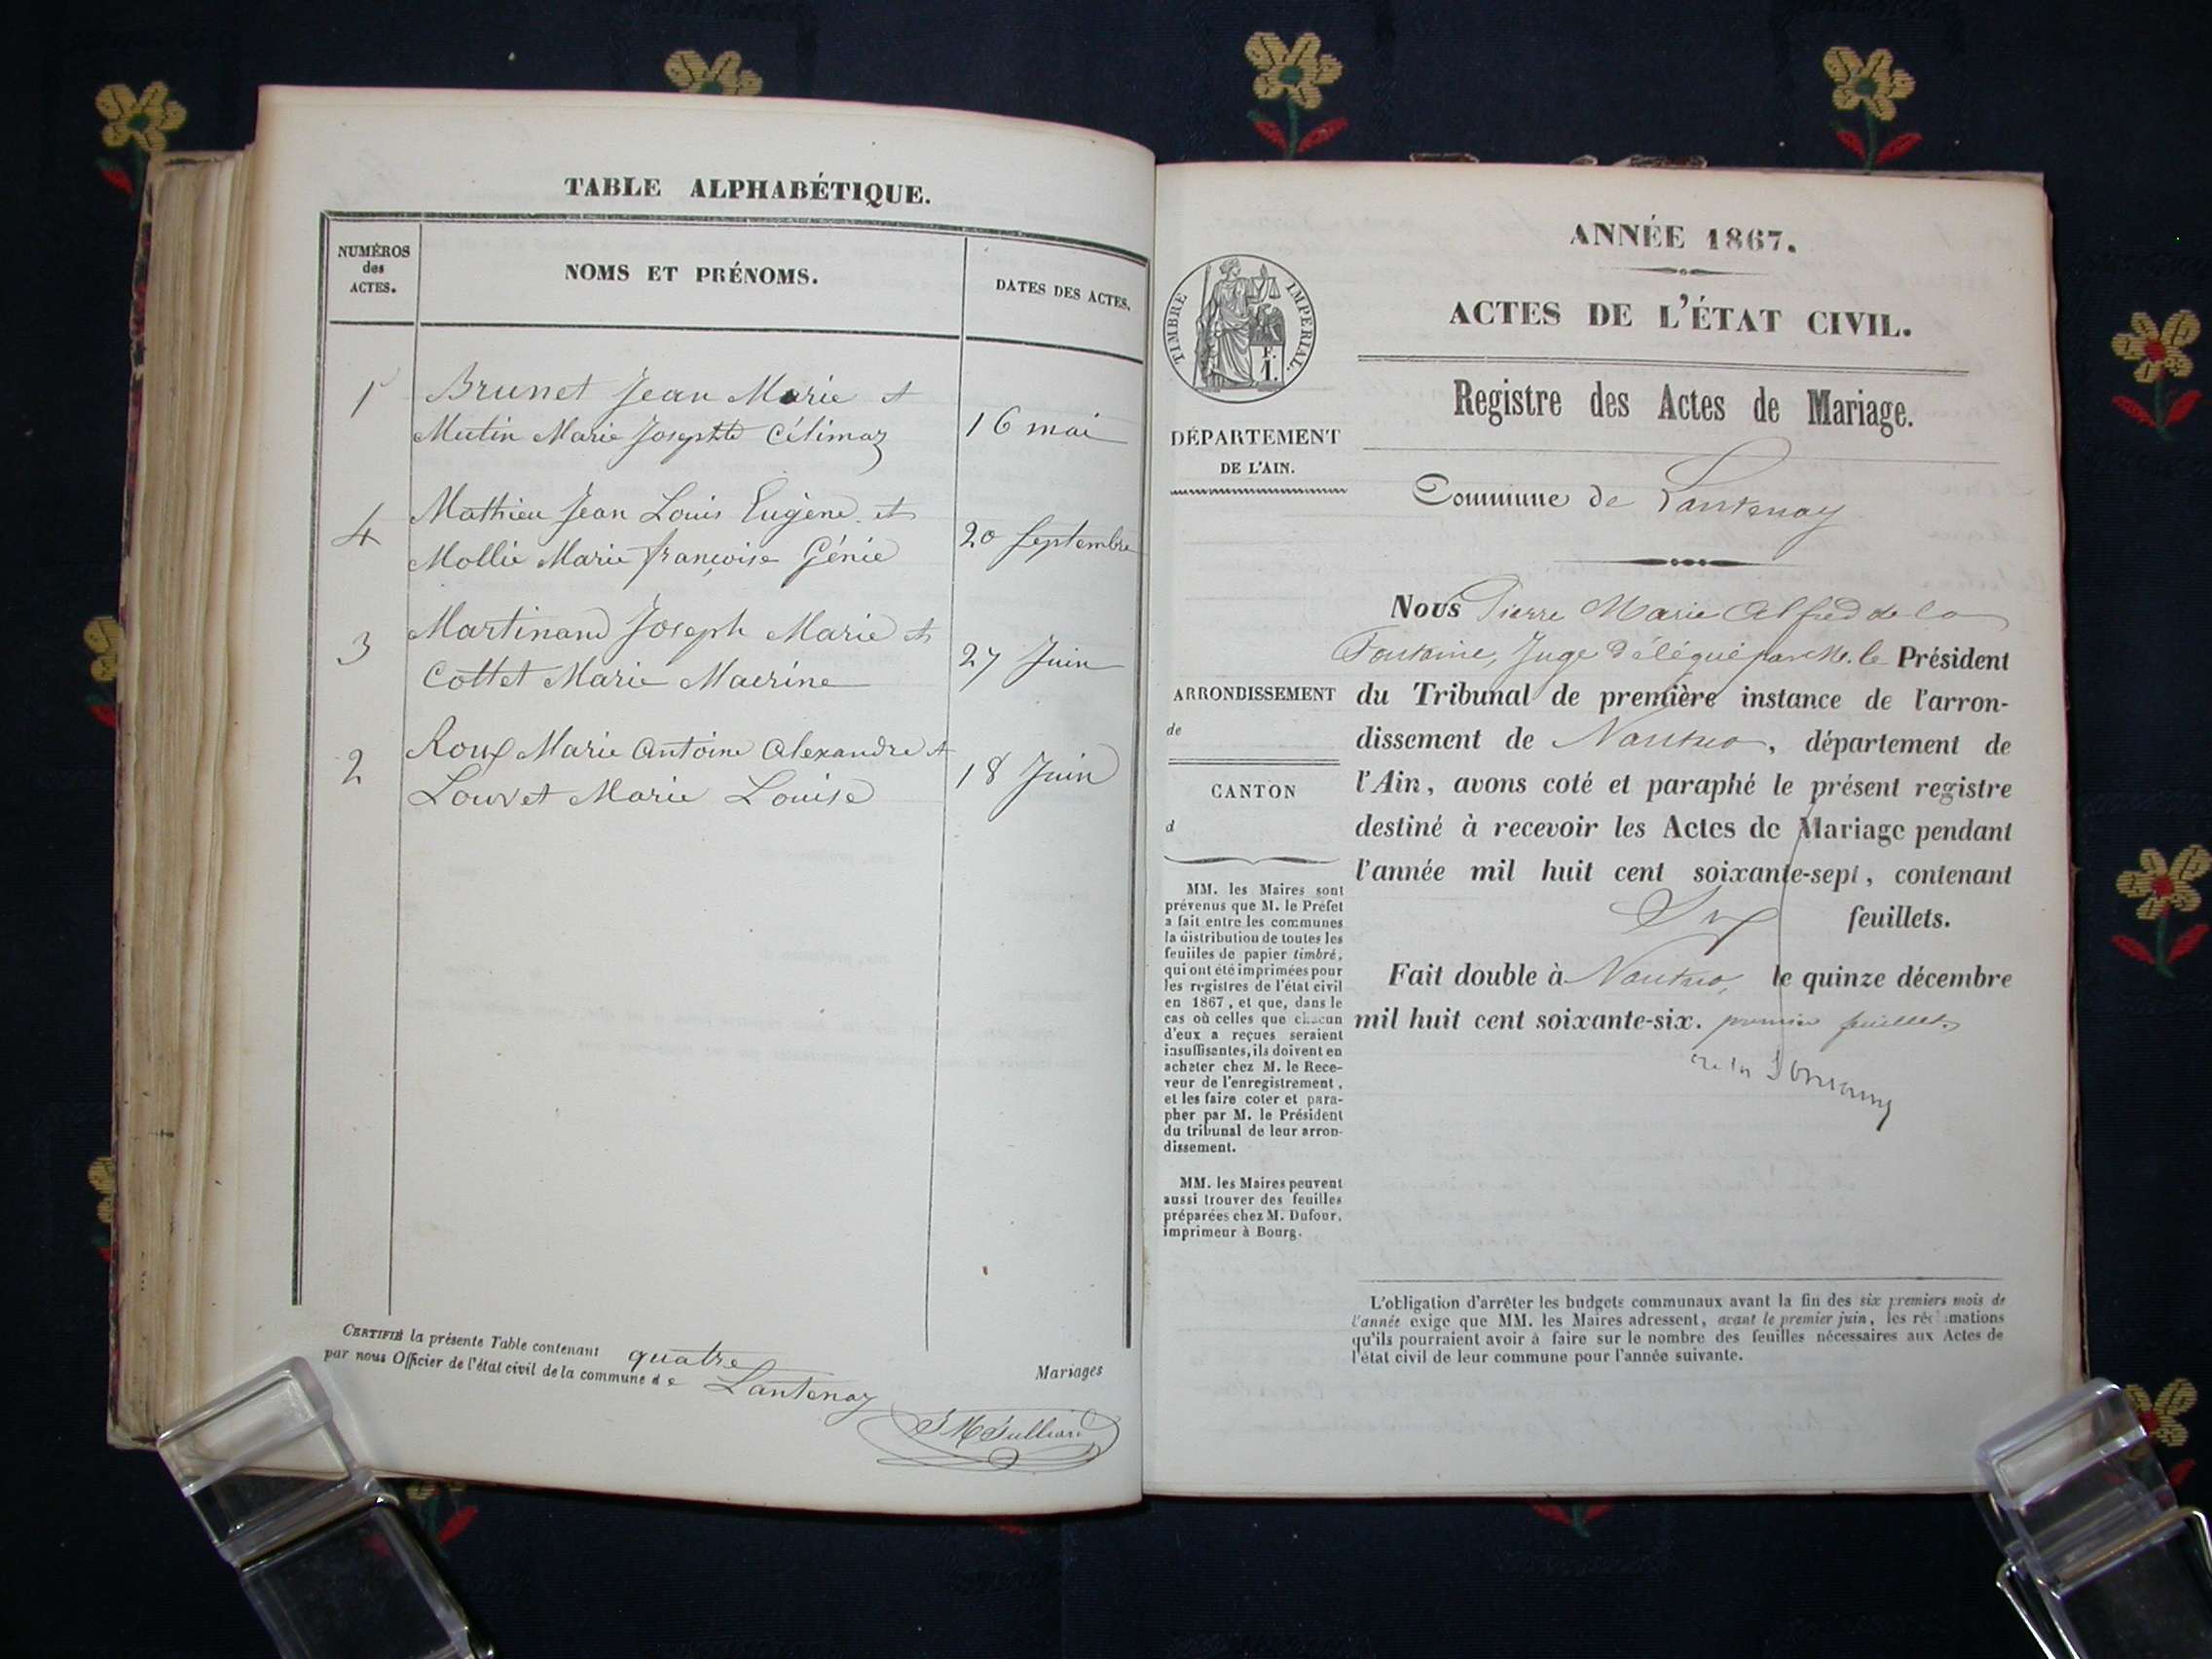 TABLE ALPHABÉTIQUE.
NUMÉROS
des
ACTES.
NOMS ET PRÉNOMS.
DATES DES ACTES.
1 Brunet Jean Marie et
Mutin Marie Josephte Célimaz 16 mai
4 Mathieu Jean Louis Eugène et
Mollie Marie françoise Génie 20 Septembre
3 Martinand Joseph Marie et
Cottet Marie Macrine 27 Juin
2 Roux Marie Antoine Alexandre et
Louvet Marie Louise 18 Juin
CERTIFIÉ la présente Table contenant quatre Mariages
par nous Officier de l'état civil de la commune de Lantenay
JMJulliard
TIMBRE IMPÉRIAL.
F.
1.
DÉPARTEMENT
DE L'AIN.
ARRONDISSEMENT
de
CANTON
d
MM. les Maires sont
prévenus que M. le Préfet
a fait entre les communes
la distribution de toutes les
feuilles de papier timbré,
qui ont été imprimées pour
les registres de l'état civil
en 1867, et que, dans le
cas où celles que chacun
d'eux a reçues seraient
insuffisantes, ils doivent en
acheter chez M. le Rece-
veur de l'enregistrement,
et les faire coter et para-
pher par M. le Président
du tribunal de leur arron-
dissement.
MM. les Maires peuvent
aussi trouver des feuilles
préparées chez M. Dufour,
imprimeur à Bourg.
ANNÉE 1867.
ACTES DE L'ÉTAT CIVIL.
Registre des Actes de Mariage.
Commune de Lantenay
Nous Pierre Marie Alfred de la
Fontaine, Juge délégué par M. le Président
du Tribunal de première instance de l'arron-
dissement de Nantua, département de
l'Ain, avons coté et paraphé le présent registre
destiné à recevoir les Actes de Mariage pendant
l'année mil huit cent soixante-sept, contenant
Six feuillets.
Fait double à Nantua, le quinze décembre
mil huit cent soixante-six. premier feuillet
L'obligation d'arrêter les budgets communaux avant la fin des six premiers mois de
l'année exige que MM. les Maires adressent, avant le premier juin, les réclamations
qu'ils pourraient avoir à faire sur le nombre des feuilles nécessaires aux Actes de
l'état civil de leur commune pour l'année suivante.